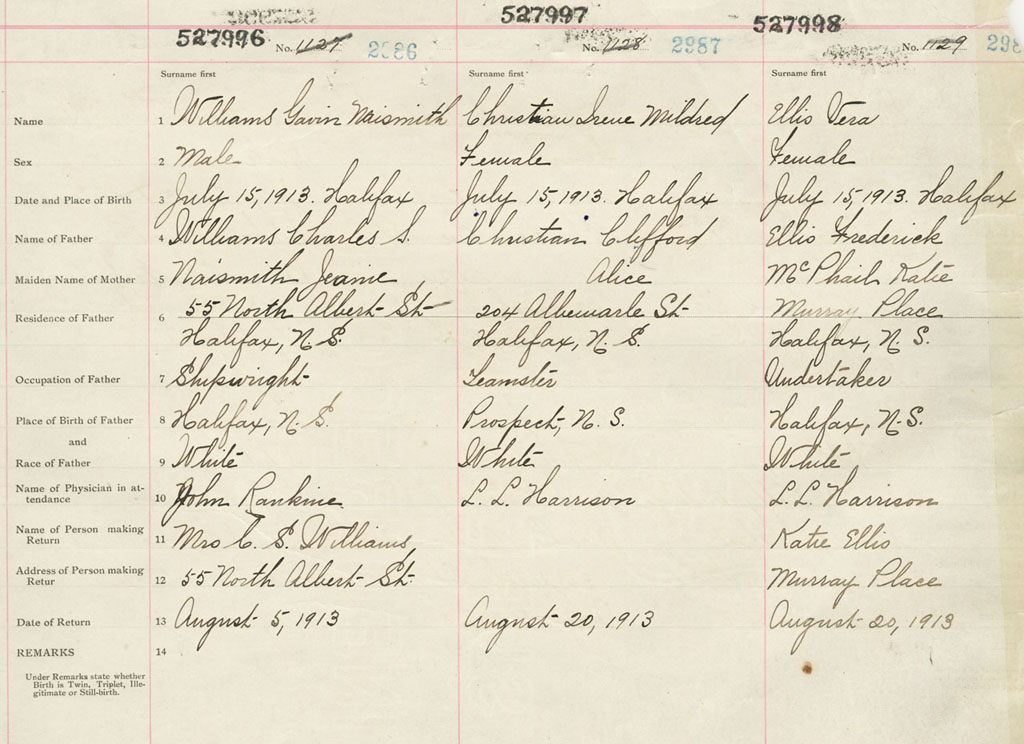 527996 527997 527998
No. 1127 2986 No. 1128 2987 No. 1129 298
Surname first Surname first Surname first
Name 1 Williams Gavin Naismith Christian Irene Mildred Ellis Vera
Sex 2 Male Female Female
Date and Place of Birth 3 July 15, 1913. Halifax July 15, 1913. Halifax July 15, 1913. Halifax
Name of Father 4 Williams Charles S. Christian Clifford Ellis Frederick
Maiden Name of Mother 5 Naismith Jeanie Alice McPhail Katie
Residence of Father 6 55 North Albert St 204 Albemarle St Murray Place
Halifax, N.S. Halifax, N.S. Halifax, N.S.
Occupation of Father 7 Shipwright Teamster Undertaker
Place of Birth of Father 8 Halifax, N.S. Prospect, N.S. Halifax, N.S.
and
Race of Father 9 White White White
Name of Physician in at-
tendance 10 John Rankine L. L. Harrison L. L. Harrison
Name of Person making
Return 11 Mrs C. S. Williams Katie Ellis
Address of Person making
Retur 12 55 North Albert St. Murray Place
Date of Return 13 August 5, 1913 August 20, 1913 August 20, 1913
REMARKS 14
Under Remarks state whether
Birth is Twin, Triplet, Ille-
gitimate or Still-birth.